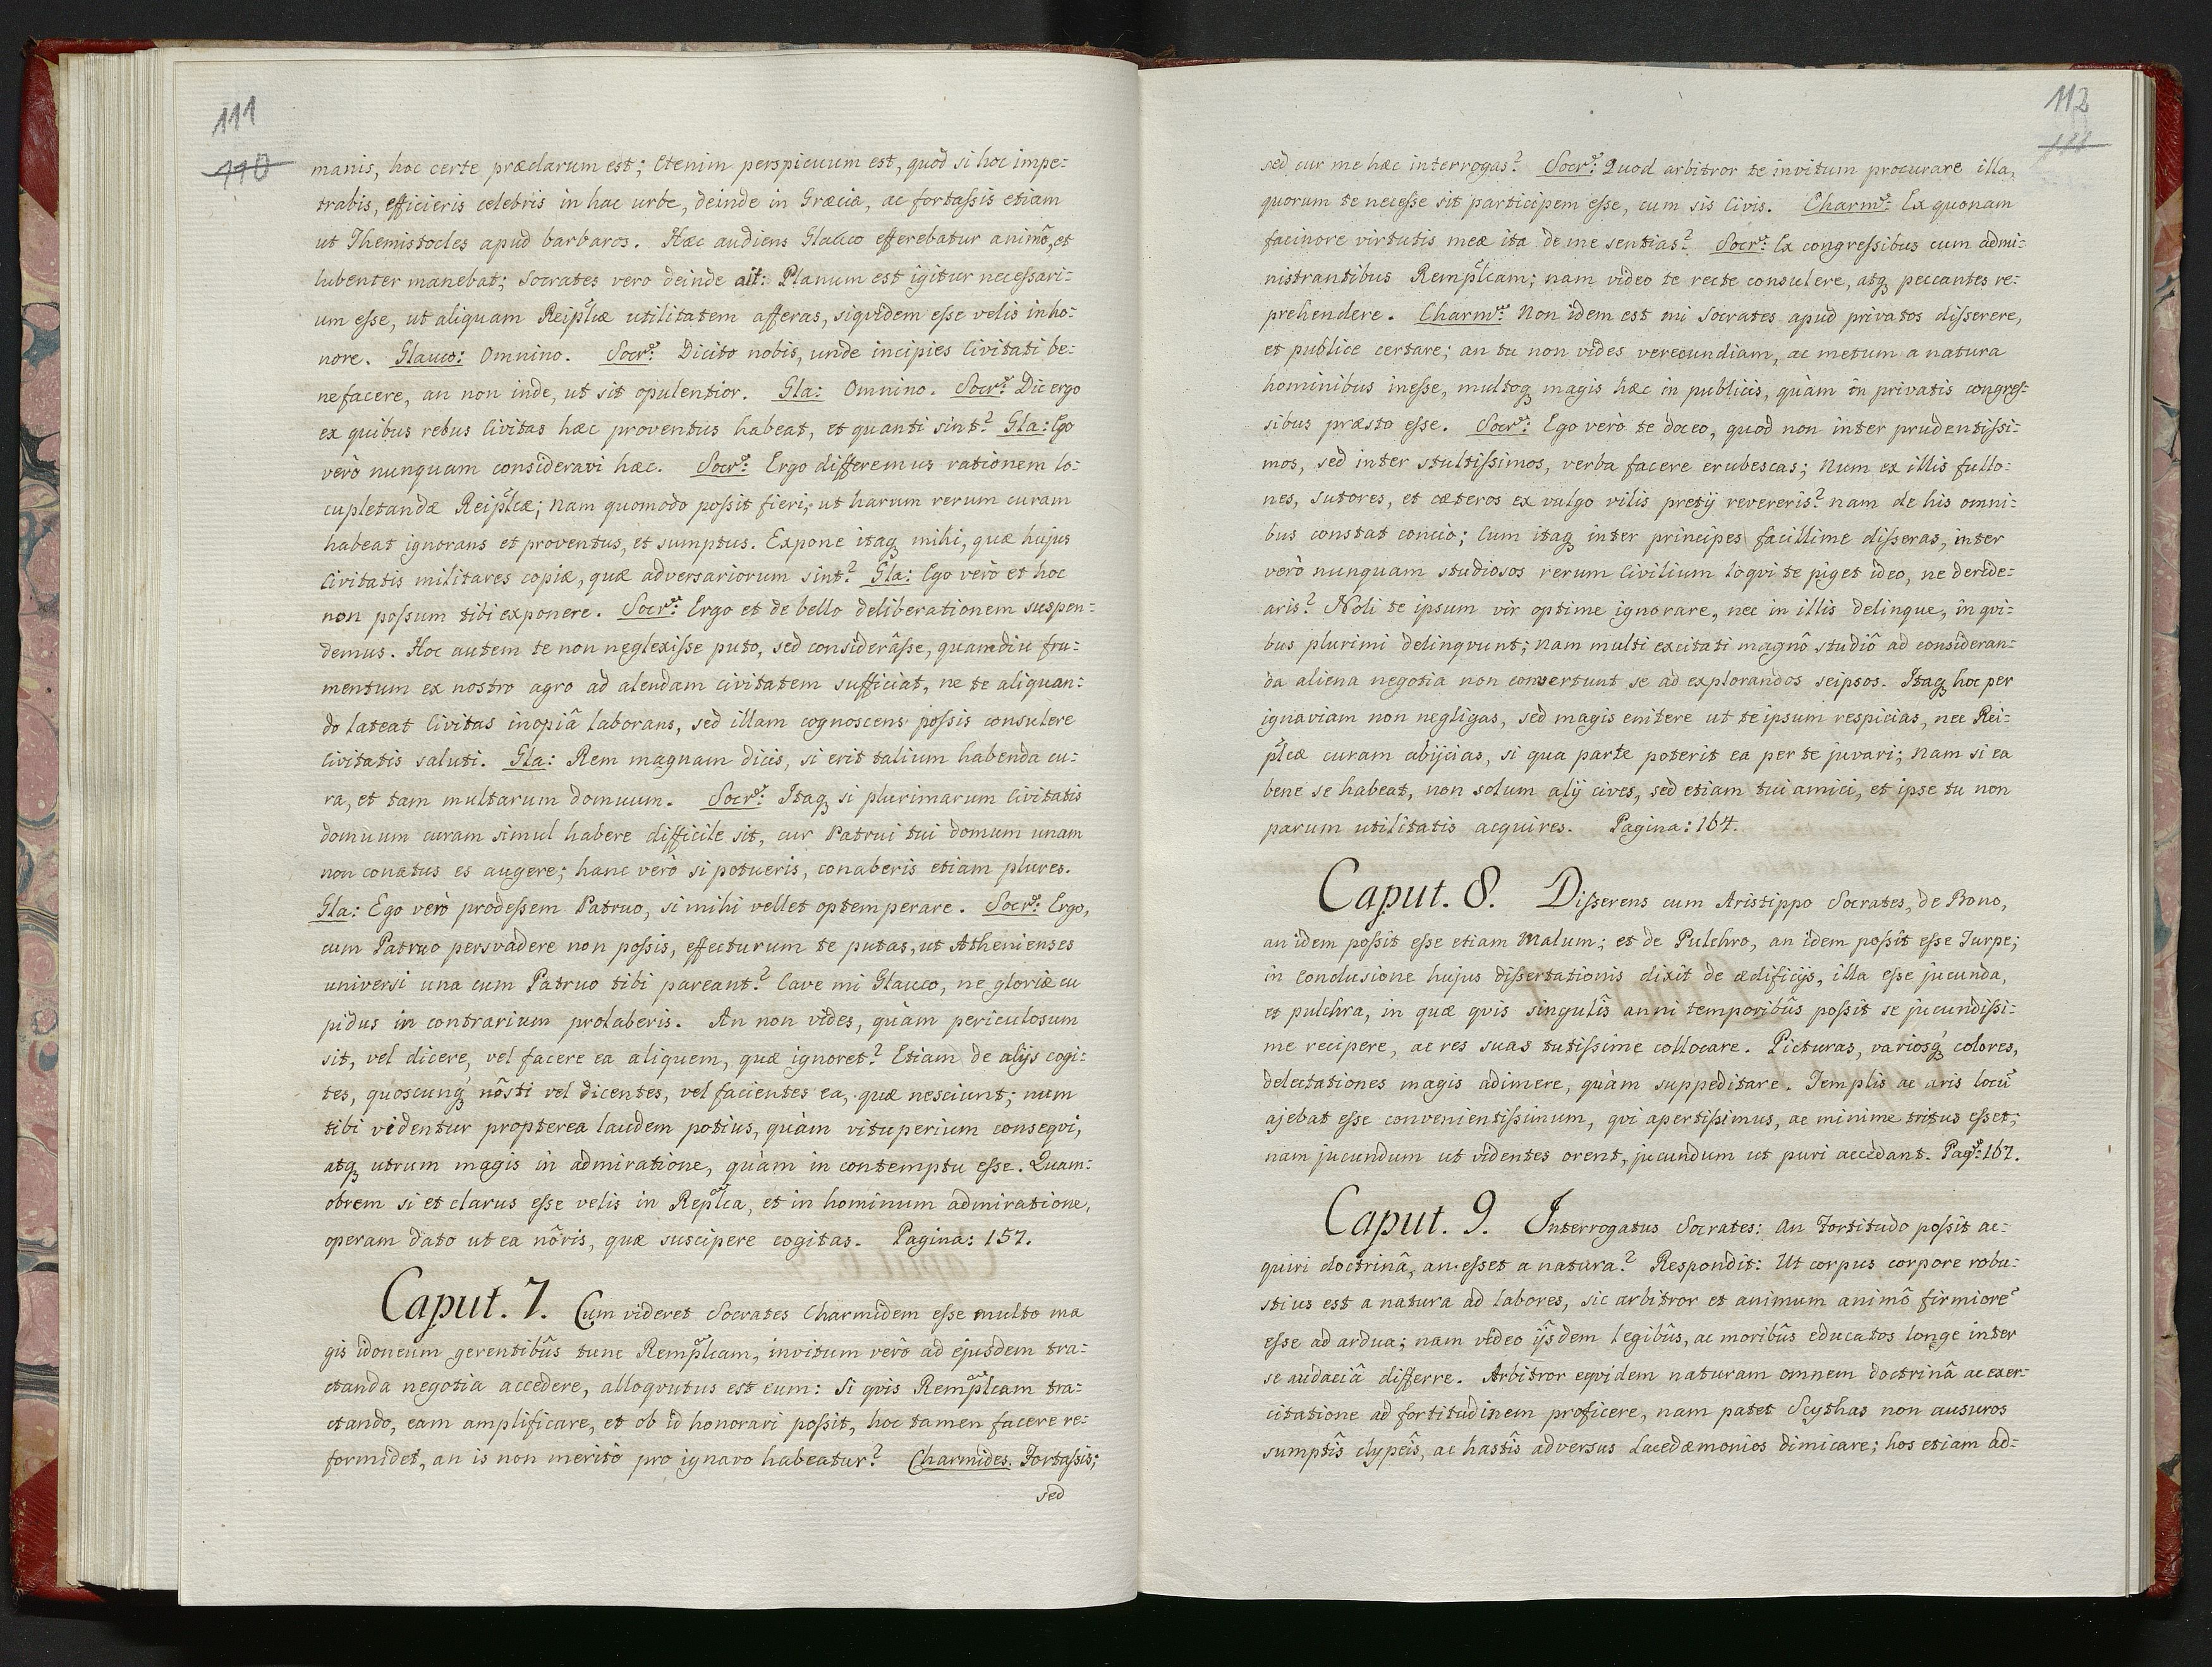 111
110
manis, hoc certe præclarum est; Etenim perspicuum est, quod si hoc impe:
trabis, efficieris celebris in hac urbe, deinde in Græcia, ac fortassis etiam
ut Themistocles apud barbaros. Hæc audiens Glauco efferebatur animô, et
lubenter manebat; Socrates vero deinde ait: Planum est igitur necessari:
um esse, ut aliquam Reiplcæ utilitatem afferas, siqvidem esse velis in ho:
nore. Glauco: Omnino. Socrs: Dicito nobis, unde incipies Civitati be:
nefacere, an non inde, ut sit opulentior. Gla: Omnino. Socrs: Dic ergo
ex quibus rebus Civitas hæc proventus habeat, et quanti sint? Gla: Ego
verò nunquam consideravi hæc. Socrs: Ergo differemus rationem lo:
cupletandæ Reiplcæ; Nam quomodo possit fieri, ut harum rerum curam
habeat ignorans et proventus, et sumptus. Expone itaq mihi, quæ hujus
Civitatis militares copiæ, quæ adversariorum sint? Gla: Ego verò et hoc
non possum tibi exponere. Socrs: Ergo et de bello deliberationem suspen:
demus. Hoc autem te non neglexisse puto, sed considerâsse, quamdiu fru:
mentum ex nostro agro ad alendam civitatem sufficiat, ne te aliquan:
do lateat Civitas inopiâ laborans, sed illam cognoscens possis consulere
Civitatis saluti. Gla: Rem magnam dicis, si erit talium habenda cu:
ra, et tam multarum domuum. Socrs: Itaq si plurimarum Civitatis
domuum curam simul habere difficile sit, cur Patrui tui domum unam
non conatus es augere; hanc verò si potueris, conaberis etiam plures.
Gla: Ego verò prodessem Patruo, si mihi vellet optemperare. Socrs: Ergo,
cum Patruo persvadere non possis, effecturum te putas, ut Athenienses
universi una cum Patruo tibi pareant? Cave mi Glauco, ne gloriæ cu
pidus in contrarium prolaberis. An non vides, quàm periculosum
sit, vel dicere, vel facere ea aliquem, quæ ignoret? Etiam de alijs cogi:
tes, quoscunq nôsti vel dicentes, vel facientes ea, quæ nesciunt; num
tibi videntur propterea laudem potius, quàm vituperium conseqvi,
atq utrum magis in admiratione, quàm in contemptu esse. Quam:
obrem si et clarus esse velis in Replca, et in hominum admiratione,
operam dato ut ea nôris, quæ suscipere cogitas. Pagina: 157.
Caput. 7. Cum videret Socrates Charmidem esse multo ma
gis idoneum gerentibûs tunc Remplcam, invitum verò ad ejusdem tra:
ctanda negotia accedere, alloqvutus est eum: Si qvis Remplcam tra:
ctando, eam amplificare, et ob id honorari possit, hoc tamen facere re:
formidet, an is non meritò pro ignavo habeatur? Charmides. Fortassis;
sed
112
111
sed cur me hæc interrogas? Socrs: Quod arbitror te invitum procurare illa,
quorum te necesse sit participem esse, cum sis Civis. Charms: Ex quonam
facinore virtutis meæ ita de me sentias? Socrs: Ex congressibus cum admi:
nistrantibus Remplcam; nam video te recte consulere, atq peccantes re:
prehendere. Charms: Non idem est mi Socrates apud privatos disserere,
et publice certare; an tu non vides verecundiam, ac metum a natura
hominibus inesse, multoq magis hæc in publicis, quàm in privatis congres:
sibus præsto esse. Socrs: Ego verò te doceo, quod non inter prudentissi:
mos, sed inter stultissimos, verba facere erubescas; Num ex illis fullo:
nes, sutores, et cæteros ex vulgo vilis pretij revereris? nam de his omni:
bus constat concio; Cum itaq inter principes facillime disseras, inter
verò nunquam studiosos rerum Civilium loqvi te piget ideo, ne deride:
aris? Noli te ipsum vir optime ignorare, nec in illis delinque, in qvi:
bus plurimi delinqvunt; Nam multi excitati magnô studiô ad consideran:
da aliena negotia non convertunt se ad explorandos seipsos. Itaq hoc per
ignaviam non negligas, sed magis enitere ut teipsum respicias, nec Rei:
plcæ curam abijcias, si qua parte poterit ea per te juvari; Nam si ea
bene se habeat, non solum alij cives, sed etiam tui amici, et ipse tu non
parum utilitatis acquires. Pagina: 164.
Caput. 8. Disserens cum Aristippo Socrates, de Bono,
an idem possit esse etiam Malum; et de Pulchro, an idem possit esse Turpe;
in Conclusione hujus dissertationis dixit de ædificijs, illa esse jucunda,
et pulchra, in quæ qvis singulîs anni temporibûs possit se jucundissi:
me recipere, ac res suas tutissime collocare. Picturas, variosq colores,
delectationes magis adimere, quàm suppeditare. Templis ac aris locū
ajebat esse convenientissimum, qvi apertissimus, ac minime tritus esset;
nam jucundum ut videntes orent, jucundum ut puri accedant. Pags: 167.
Caput. 9. Interrogatus Socrates: an Fortitudo possit ac:
quiri doctrinâ, an esset a natura? Respondit: Ut corpus corpore robu:
stius est a natura ad labores, sic arbitror et animum animô firmiorē
esse ad ardua; nam video ijsdem legibûs, ac moribûs educatos longe inter
se audaciâ differre. Arbitror eqvidem naturam omnem doctrinâ ac exer:
citatione ad fortitudinem proficere, nam patet Scythas non ausuros
sumptîs clypeîs, ac hastîs adversus Lacedæmonios dimicare; hos etiam ad: